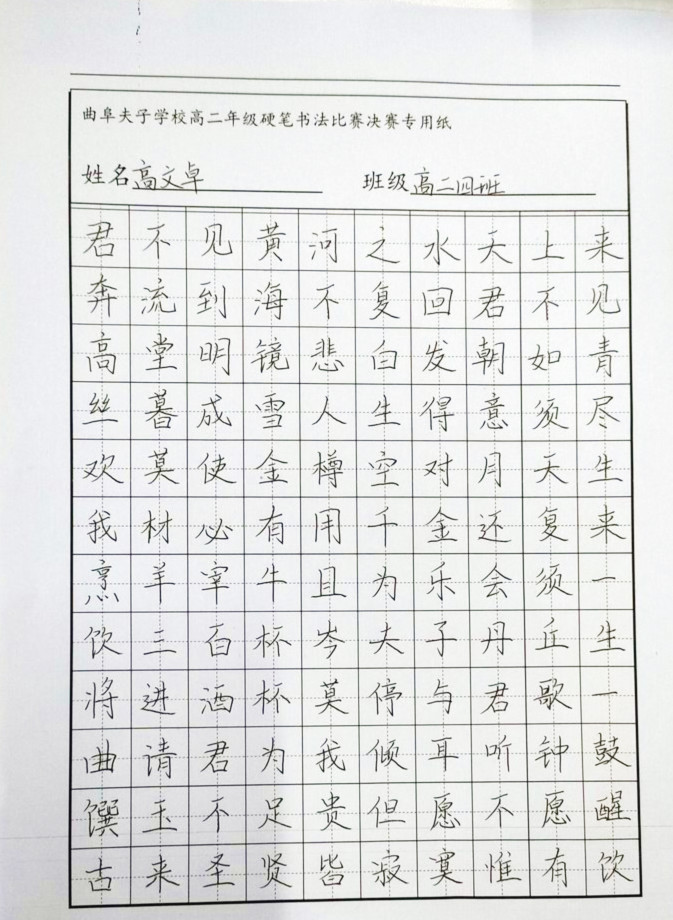 曲阜夫子学校高二年级硬笔书法比赛决赛专用纸
姓名高文卓 班级高二四班
君不见黄河之水天上来
奔流到海不复回君不见
高堂明镜悲白发朝如青
丝暮成雪人生得意须尽
欢莫使金樽空对月天生
我材必有用千金还复来
烹羊宰牛且为乐会须一
饮三百杯岑夫子丹丘生
将进酒杯莫停与君歌一
曲请君为我倾耳听钟鼓
馔玉不足贵但愿不愿醒
古来圣贤皆寂寞惟有饮